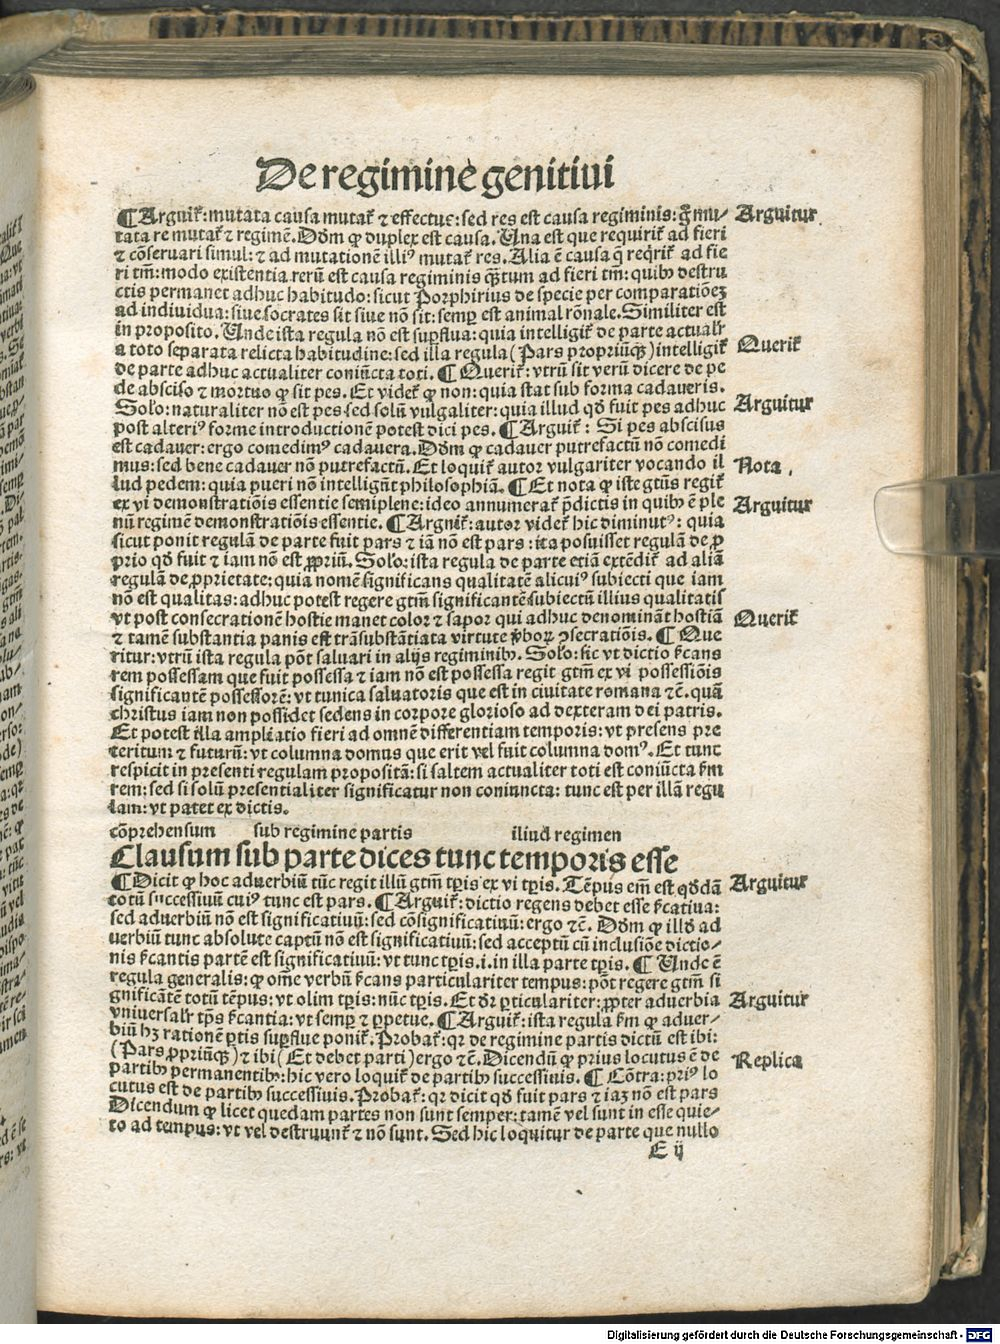 De regimine genitiui
¶Arguit᷑: mutata causa mutat᷑ ⁊ effectus: sed res est causa regiminis: g̊ mu-
tata re mutat᷑ ⁊ regimē. Dōm ꝙ duplex est causa. Una est que requirit᷑ ad fieri
⁊ cōseruari simul: ⁊ ad mutationē illiꝰ mutat᷑ res. Alia ē causa q̄ req̄rit᷑ ad fie
ri tm̄: modo existentia rerū est causa regiminis q̄ꝫtum ad fieri tm̄: quibꝰ destru
ctis permanet adhuc habitudo: sicut Porphirius de specie per comparatiōeꝫ
ad indiuidua: siue socrates sit siue nō sit: semꝑ est animal rōnale. Similiter est
in proposito. Unde ista regula nō est suꝑflua: quia intelligit᷑ de parte actualr̄
a toto separata relicta habitudine: sed illa regula (Pars propriūqꝫ) intelligit᷑
de parte adhuc actualiter coniūcta toti. ¶Querit᷑: vtrū sit verū dicere de pe
de absciso ⁊ mortuo ꝙ sit pes. Et videt᷑ ꝙ non: quia stat sub forma cadaueris.
Solo: naturaliter nō est pes sed solū vulgaliter: quia illud qd̄ fuit pes adhuc
post alteriꝰ forme introductionē potest dici pes. ¶Arguit᷑: Si pes abscisus
est cadauer: ergo comedimꝰ cadauera. Dōm ꝙ cadauer putrefactū nō comedi
mus: sed bene cadauer nō putrefactū. Et loquit᷑ autor vulgariter vocando il
lud pedem: quia pueri nō intelligūt philosophiā. ¶Et nota ꝙ iste gtūs regit᷑
ex vi demonstratiōis essentie semiplene: ideo annumerat᷑ p̄dictis in quibꝰ ē ple
nū regimē demonstratiōis essentie. ¶Arguit᷑: autor videt᷑ hic diminutꝰ: quia
sicut ponit regulā de parte fuit pars ⁊ iā nō est pars: ita posuisset regulā de ꝓ
prio qd̄ fuit ⁊ iam nō est ꝓpriū. Solo: ista regula de parte etiā extēdit᷑ ad aliā
regulā de ꝓprietate: quia nomē significans qualitatē alicuiꝰ subiecti que iam
nō est qualitas: adhuc potest regere gtm̄ significantē subiectū illius qualitatis
vt post consecrationē hostie manet color ⁊ sapor qui adhuc denomināt hostiā
⁊ tamē substantia panis est trāsubstātiata virtute v̄boꝝ ꝯsecratiōis. ¶Que
ritur: vtrū ista regula pōt saluari in alijs regiminibꝰ. Solo: sic vt dictio sc̄ans
rem possessam que fuit possessa ⁊ iam nō est possessa regit gtm̄ ex vi possessiōis
significantē possessorē: vt tunica saluatoris que est in ciuitate romana ⁊c̄. quā
christus iam non possidet sedens in corpore glorioso ad dexteram dei patris.
Et potest illa ampliatio fieri ad omnē differentiam temporis: vt presens pre
teritum ⁊ futurū: vt columna domus que erit vel fuit columna domꝰ. Et tunc
respicit in presenti regulam propositā: si saltem actualiter toti est coniūcta sm̄
rem: sed si solū presentialiter significatur non coniuncta: tunc est per illā regu
lam: vt patet ex dictis.
cōprehensum sub regimine partis iliud regimen
Clausum sub parte dices tunc temporis esse
¶Dicit ꝙ hoc aduerbiū tūc regit illū gtm̄ tꝑis ex vi tꝑis. Tēpus em̄ est qd̄dā
totū successiuū cuiꝰ tunc est pars. ¶Arguit᷑: dictio regens debet esse sc̄atiua:
sed aduerbiū nō est significatiuū: sed cōsignificatiuū: ergo ⁊c̄. Dōm ꝙ illd̄ ad
uerbiū tunc absolute captū nō est significatiuū: sed acceptū cū inclusiōe dictio-
nis sc̄antis partē est significatiuū: vt tunc tꝑis .i. in illa parte tꝑis. ¶Unde ē
regula generalis: ꝙ om̄e verbū sc̄ans particulariter tempus: pōt regere gtm̄ si
gnificātē totū tēpus: vt olim tꝑis: nūc tꝑis. Et dr̄ ꝑticulariter: ꝓpter aduerbia
vniuersalr̄ tꝑs sc̄antia: vt semꝑ ⁊ ꝑpetue. ¶Arguit᷑: ista regula sm̄ ꝙ aduer-
biū hꝫ rationē ꝑtis suꝑflue ponit᷑. Probat᷑: qꝛ de regimine partis dictū est ibi:
(Pars ꝓpriūqꝫ) ⁊ ibi (Et debet parti) ergo ⁊c̄. Dicendū ꝙ prius locutus ē de
partibꝰ permanentibꝰ: hic vero loquit᷑ de partibꝰ successiuis. ¶Cōtra: priꝰ lo
cutus est de partibꝰ successiuis. Probat᷑: qꝛ dicit qd̄ fuit pars ⁊ iaꝫ nō est pars
Dicendum ꝙ licet quedam partes non sunt semper: tamē vel sunt in esse quie-
to ad tempus: vt vel destruunt᷑ ⁊ nō sunt. Sed hic loquitur de parte que nullo
E ij
Arguitur
Querit᷑
Arguitur
Nota.
Arguitur
Querit᷑
Arguitur
Arguitur
Replica
Digitalisierung gefördert durch die Deutsche Forschungsgemeinschaft - DFG